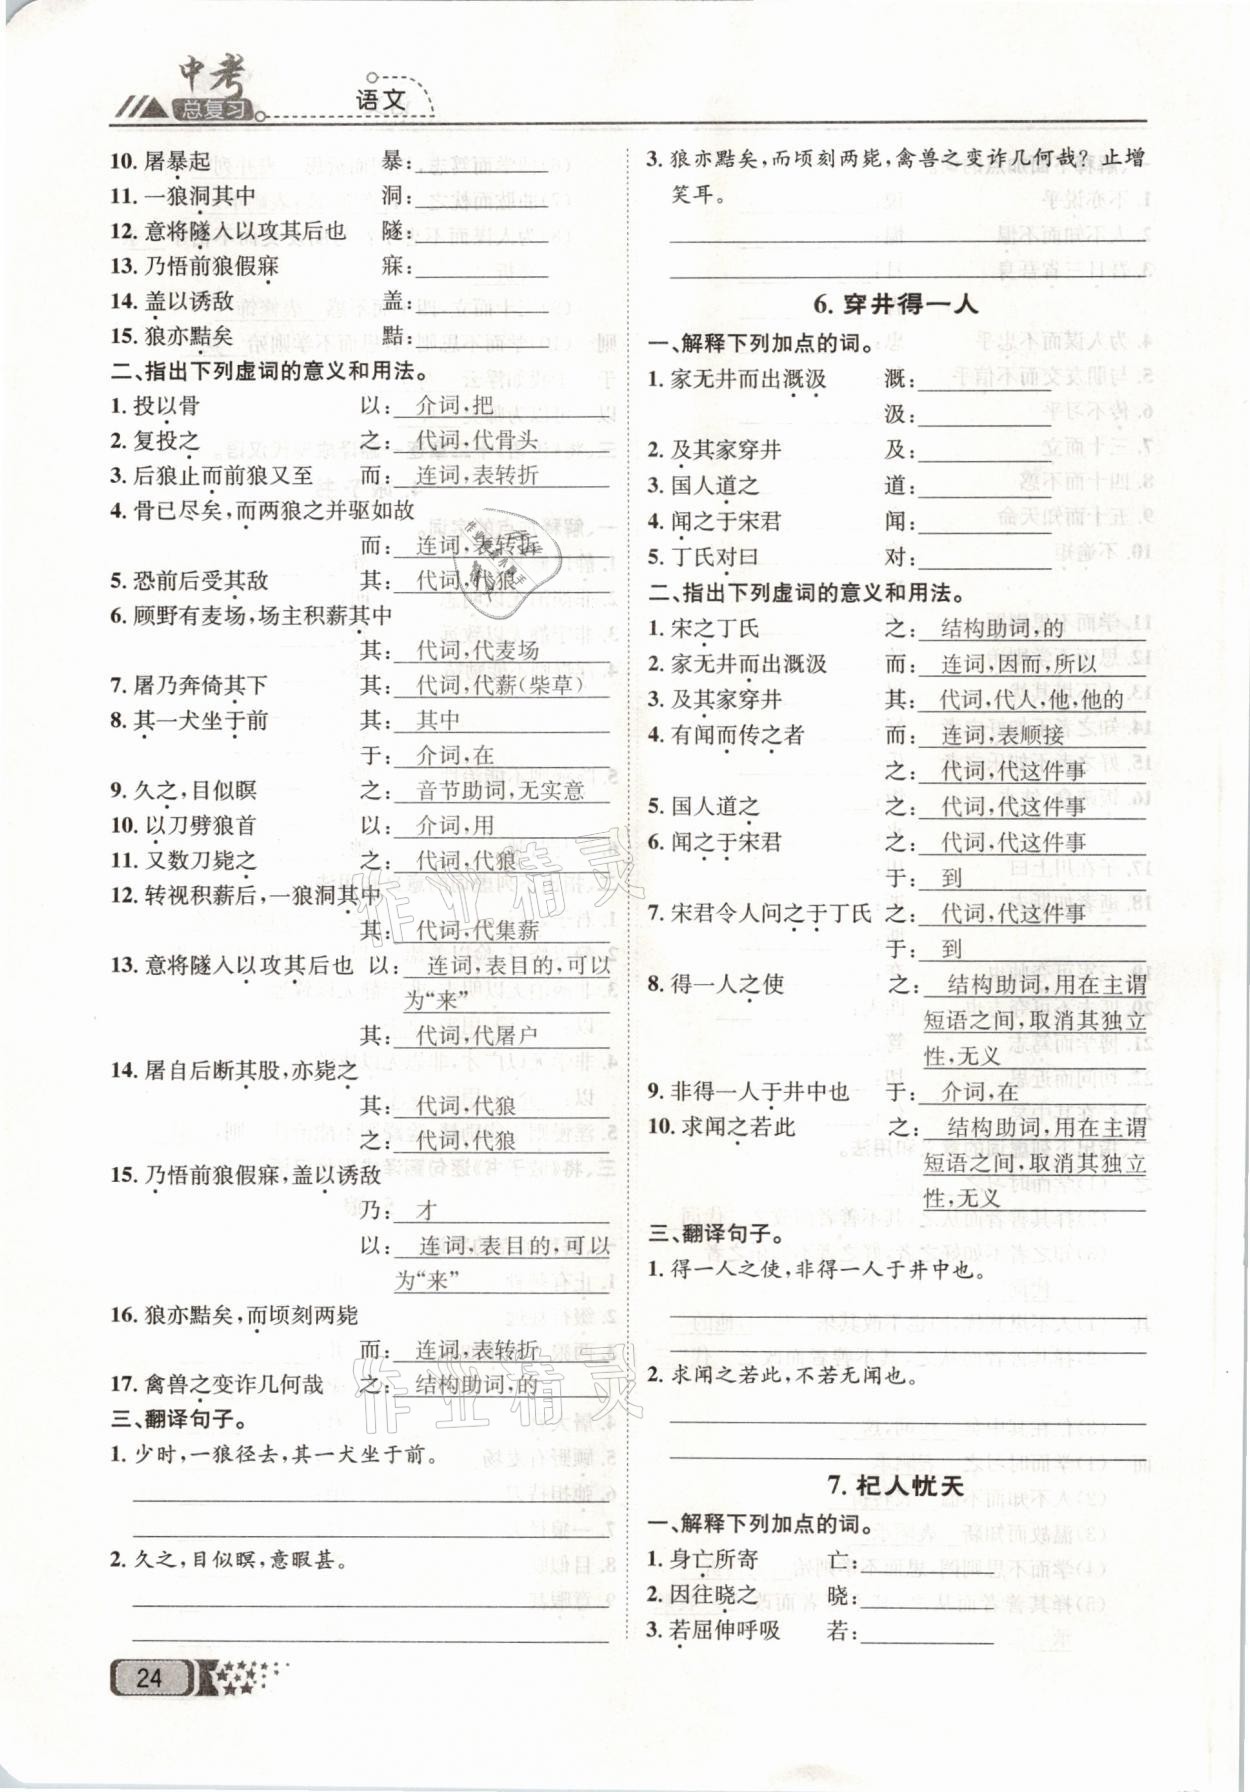 中考
总复习
语文
10. 屠暴起 暴:
11. 一狼洞其中 洞:
12. 意将隧入以攻其后也 隧:
13. 乃悟前狼假寐 寐:
14. 盖以诱敌 盖:
15. 狼亦黠矣 黠:
二、指出下列虚词的意义和用法。
1. 投以骨 以: 介词,把
2. 复投之 之: 代词,代骨头
3. 后狼止而前狼又至 而: 连词,表转折
4. 骨已尽矣,而两狼之并驱如故
而: 连词,表转折
5. 恐前后受其敌 其: 代词,代狼
6. 顾野有麦场,场主积薪其中
其: 代词,代麦场
7. 屠乃奔倚其下 其: 代词,代薪(柴草)
8. 其一犬坐于前 其: 其中
于: 介词,在
9. 久之,目似瞑 之: 音节助词,无实意
10. 以刀劈狼首 以: 介词,用
11. 又数刀毙之 之: 代词,代狼
12. 转视积薪后,一狼洞其中
其: 代词,代集薪
13. 意将隧入以攻其后也 以: 连词,表目的,可以
为“来”
其: 代词,代屠户
14. 屠自后断其股,亦毙之
其: 代词,代狼
之: 代词,代狼
15. 乃悟前狼假寐,盖以诱敌
乃: 才
以: 连词,表目的,可以
为“来”
16. 狼亦黠矣,而顷刻两毙
而: 连词,表转折
17. 禽兽之变诈几何哉 之: 结构助词,的
三、翻译句子。
1. 少时,一狼径去,其一犬坐于前。
2. 久之,目似瞑,意暇甚。
24
3. 狼亦黠矣,而顷刻两毙,禽兽之变诈几何哉?止增
笑耳。
6. 穿井得一人
一、解释下列加点的词。
1. 家无井而出溉汲 溉:
汲:
2. 及其家穿井 及:
3. 国人道之 道:
4. 闻之于宋君 闻:
5. 丁氏对曰 对:
二、指出下列虚词的意义和用法。
1. 宋之丁氏 之: 结构助词,的
2. 家无井而出溉汲 而: 连词,因而,所以
3. 及其家穿井 其: 代词,代人,他,他的
4. 有闻而传之者 而: 连词,表顺接
之: 代词,代这件事
5. 国人道之 之: 代词,代这件事
6. 闻之于宋君 之: 代词,代这件事
于: 到
7. 宋君令人问之于丁氏 之: 代词,代这件事
于: 到
8. 得一人之使 之: 结构助词,用在主谓
短语之间,取消其独立
性,无义
9. 非得一人于井中也 于: 介词,在
10. 求闻之若此 之: 结构助词,用在主谓
短语之间,取消其独立
性,无义
三、翻译句子。
1. 得一人之使,非得一人于井中也。
2. 求闻之若此,不若无闻也。
7. 杞人忧天
一、解释下列加点的词。
1. 身亡所寄 亡:
2. 因往晓之 晓:
3. 若屈伸呼吸 若:
作业精灵
作业精灵